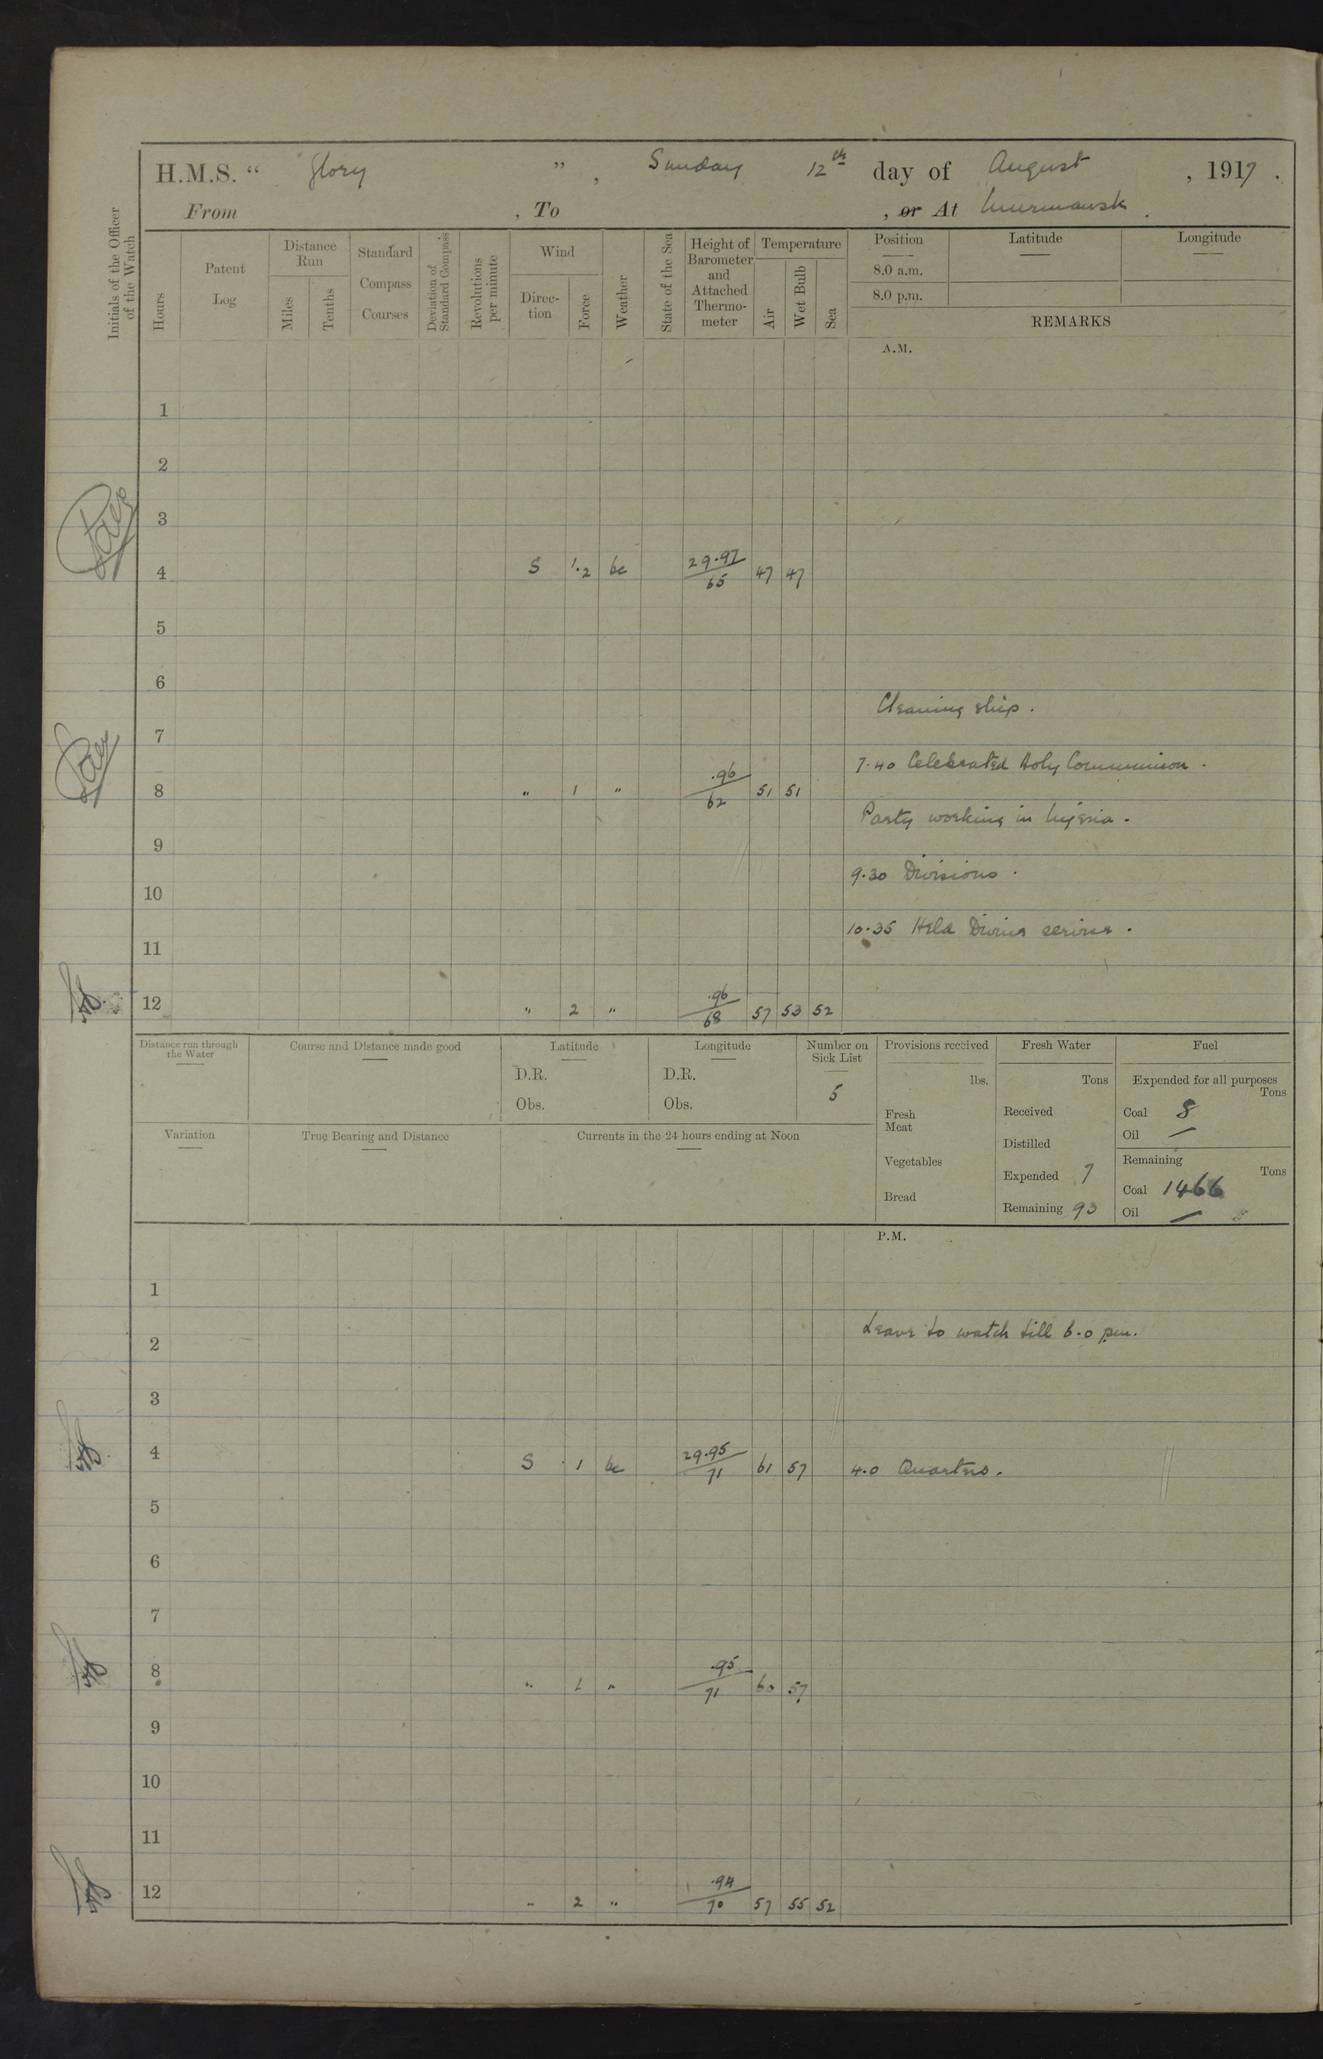 H.M.S. " Glory ", Sunday 12th day of August, 1917.
From , To , or At Murmansk.
Initials of the Officer of the Watch
Hours
Patent Log
Distance Run
Miles
Tenths
Standard Compass Courses
Deviation of Standard Compass
Revolutions per minute
Wind
Direction
Force
Weather
State of the Sea
Height of Barometer and Attached Thermometer
Temperature
Air
Wet Bulb
Sea
Position
Latitude
Longitude
8.0 a.m.
8.0 p.m.
REMARKS
A.M.
1
2
3
4 S 1.2 bc 29.97/65 47 47
5
6
Cleaning ship.
7
7.40 Celebrated Holy Communion.
8 " 1 " .96/62 51 51
Party working in
9
9.30 Divisions.
10
10.35 Held Divine service.
11
12 " 2 " .96/68 57 53 52
Distance run through the Water
Course and Distance made good
Latitude
D.R.
Obs.
Longitude
D.R.
Obs.
Number on Sick List
5
Provisions received
lbs.
Fresh Meat
Vegetables
Bread
Fresh Water
Tons
Received
Distilled
Expended 7
Remaining 93
Fuel
Expended for all purposes
Tons
Coal 8
Oil —
Remaining
Tons
Coal 1466
Oil —
Variation
True Bearing and Distance
Currents in the 24 hours ending at Noon
P.M.
1
Leave to watch till 6.0 pm.
2
3
4 S 1 bc 29.95/71 61 57 4.0 Quarters.
5
6
7
8 " 1 " .95/71 60 57
9
10
11
12 " 2 " .94/70 57 55 52